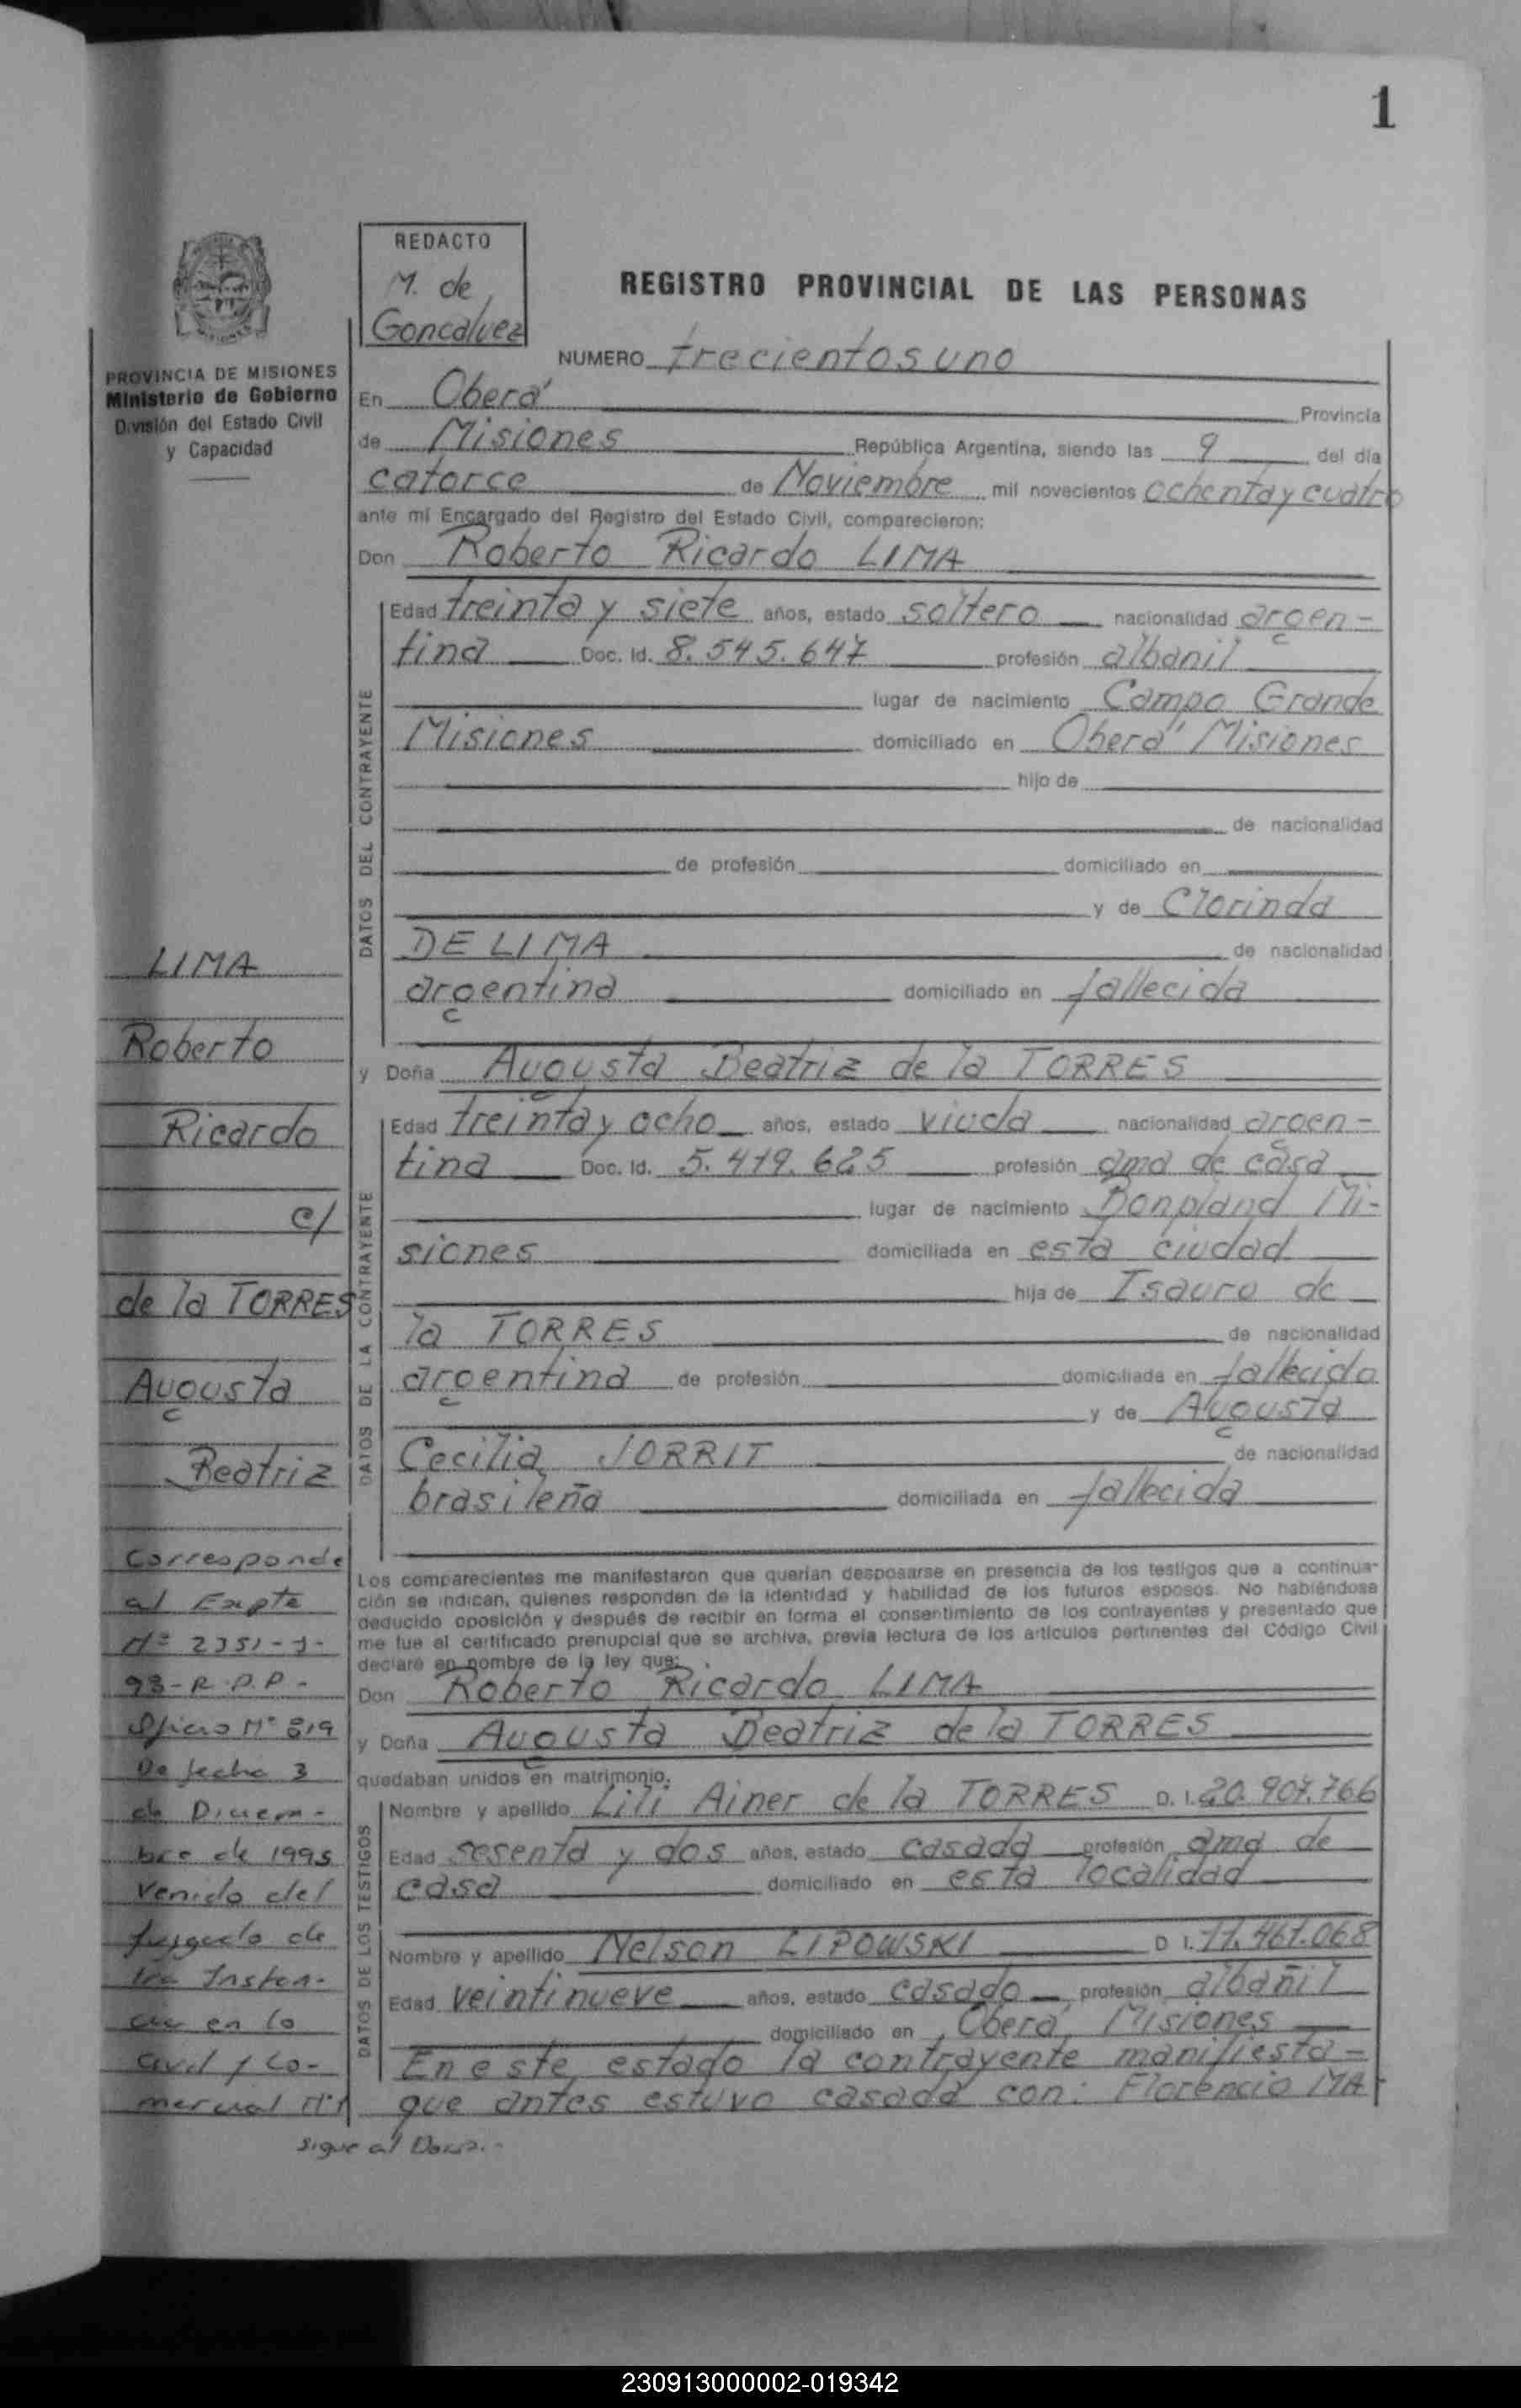 1
REDACTO
M. de
Goncalvez
REGISTRO PROVINCIAL DE LAS PERSONAS
PROVINCIA DE MISIONES
Ministerio de Gobierno
División del Estado Civil
y Capacidad
NUMERO trecientos uno
En Oberá Provincia
de Misiones República Argentina, siendo las 9 del día
catorce de Noviembre mil novecientos ochenta y cuatro
ante mí Encargado del Registro del Estado Civil, comparecieron:
Don Roberto Ricardo LIMA
DATOS DEL CONTRAYENTE
Edad treinta y siete años, estado soltero nacionalidad argen-
tina Doc. Id. 8.545.647 profesión albanil
lugar de nacimiento Campo Grande
Misiones domiciliado en Oberá Misiones
hijo de
de nacionalidad
de profesión domiciliado en
y de Clorinda
DE LIMA de nacionalidad
argentina domiciliado en fallecida
y Doña Augusta Beatriz de la TORRES
DATOS DE LA CONTRAYENTE
Edad treinta y ocho años, estado viuda nacionalidad argen-
tina Doc. Id. 5.419.625 profesión ama de casa
lugar de nacimiento Bonpland Mi-
siones domiciliada en esta ciudad
hija de Isauro de
la TORRES de nacionalidad
argentina de profesión domiciliada en fallecido
y de Augusta
Cecilia JORRIT de nacionalidad
brasileña domiciliada en fallecida
Los comparecientes me manifestaron que querían desposarse en presencia de los testigos que a continua-
ción se indican, quienes responden de la identidad y habilidad de los futuros esposos. No habiéndose
deducido oposición y después de recibir en forma el consentimiento de los contrayentes y presentado que
me fue el certificado prenupcial que se archiva, previa lectura de los artículos pertinentes del Código Civil
declaré en nombre de la ley que:
Don Roberto Ricardo LIMA
y Doña Augusta Beatriz de la TORRES
quedaban unidos en matrimonio.
DATOS DE LOS TESTIGOS
Nombre y apellido Lili Ainer de la TORRES D. I. 20.907.766
Edad sesenta y dos años, estado casada profesión ama de
casa domiciliado en esta localidad
Nombre y apellido Nelson LIPOWSKI D. I. 11.461.068
Edad veintinueve años, estado casado profesión albañil
domiciliado en Oberá Misiones
En este estado la contrayente manifiesta-
que antes estuvo casada con: Florencio MA
LIMA
Roberto
Ricardo
c/
de la TORRES
Augusta
Beatriz
Corresponde
al Expte
Nº 2351-J-
93-R.P.P-
Oficio Nº 819
De fecha 3
de Diciem-
bre de 1995
Venido del
Juzgado de
1ra Instan-
cia en lo
Civil y Co-
mercial Nº1
sigue al Dorso.-
230913000002-019342